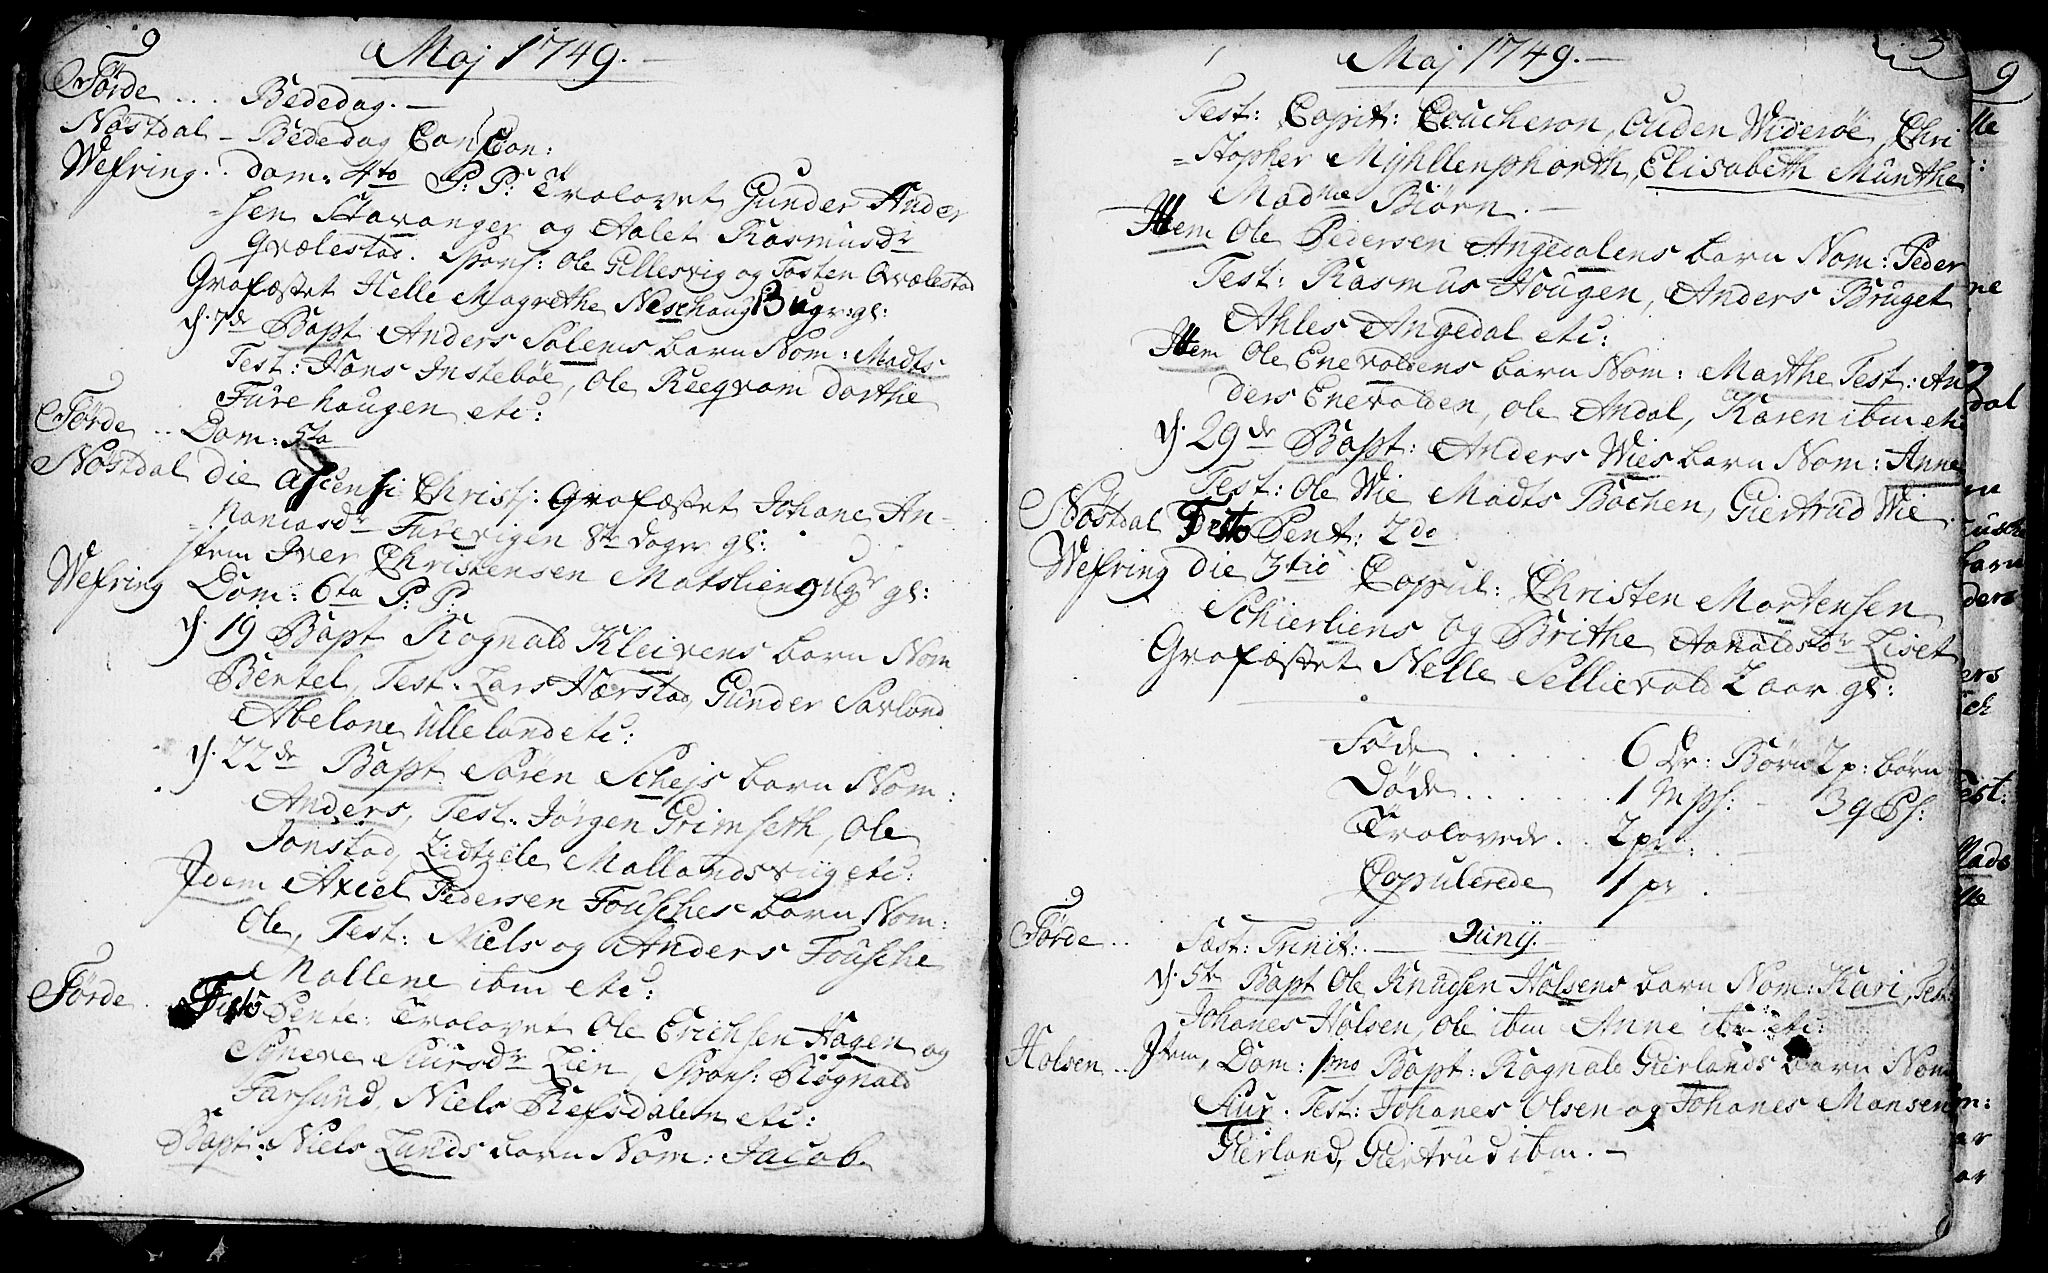 Maj 1749.
Förde ... Bededag.
Nöstdal - Bededag Con
Wefring .. dom: 4to P: P: Trolovet Gunder Ander
=sen Stavanger og Aalet Rasmusdr
Qvælestad. Spons: Ole Gillesvig og Tosten Qvælestad
Grafæstet Helle Magrethe Neschaug 3 ugr: gl:
d. 7de Bapt Anders Solems barn Nom: Madts
Test: Hans Instebøe, Ole Reeqvam dorthe
Furehaugen etc:
Förde .. Dom: 5ta
Nöstdal die Ascensi Christ: Grafæstet Johane An-
=naniasdr Furevigen 8te dager gl:
item Iver Christensen Matslien 9 ugr gl:
Wefring Dom: 6ta P: P:
d. 19 Bapt Rognald Kleivens barn Nom
Bentel, Test. Lars Hærstad, Gunder Savland
Abelone Ulleland etc:
d. 22de Bapt. Sören Schejs barn Nom:
Anders, Test. Jörgen Grimseth, Ole
Jonstad, Mallandsviig etc:
Idem Axcel Pedersen Fousches barn Nom:
Ole, Test: Niels og Anders Fousche
Mallene ibm etc:
Förde . Festo Pente: Trolovet Ole Erichsen Hagen og
Synneve Siursdr Lien, Spons: Rognald
Farsund, Niels Refsdalen etc:
Bapt: Niels Lunds barn Nom: Jacob.
Maj 1749.
Test: Capit: Coucheron, Ouden Widerøe, Chri
=stopher Myhllenphorth, Elisabeth Munthe
Madme Biörn.
Item Ole Pedersen Angedalens barn Nom: Peder
Test: Rasmus Hougen, Anders Bruget
Ahles Angedal etc:
Item Ole Enevoldens barn Nom: Marthe Test: An
ders Enevolden, Ole Andal, Karen ibm etc
d. 29de Bapt: Anders Wies barn Nom: Anne
Test: Ole Wie Madts Bachen, Giertrud Wie
Nöstdal Festo Pent: 2do
Wefring die 3tio Copul: Christen Mortensen
Schierliens og Brithe Aanaldsdr Liset
Grafæstet Nelle Sellievold 2 aar gl:
Föde . . . . . 6 Dr: Börn 2 p: börn
Döde . . . . . 1 M ps: - 3 q Ps:
Trolovede . . 2 pr:
Copulerede 1 pr .
Juny.
Förde .. Fæst: Trinit:
d. 5te Bapt Ole Knudsen Holsens barn Nom: Kari, Test:
Johanes Holsen, Ole ibm Anne ibm etc:
Holsen .. Item, Dom: 1mo Bapt: Rognald Gierlands barn Nom
Siur. Test: Johanes Olsen og Johanes Monsen
Gierland, Giertrud ibm.